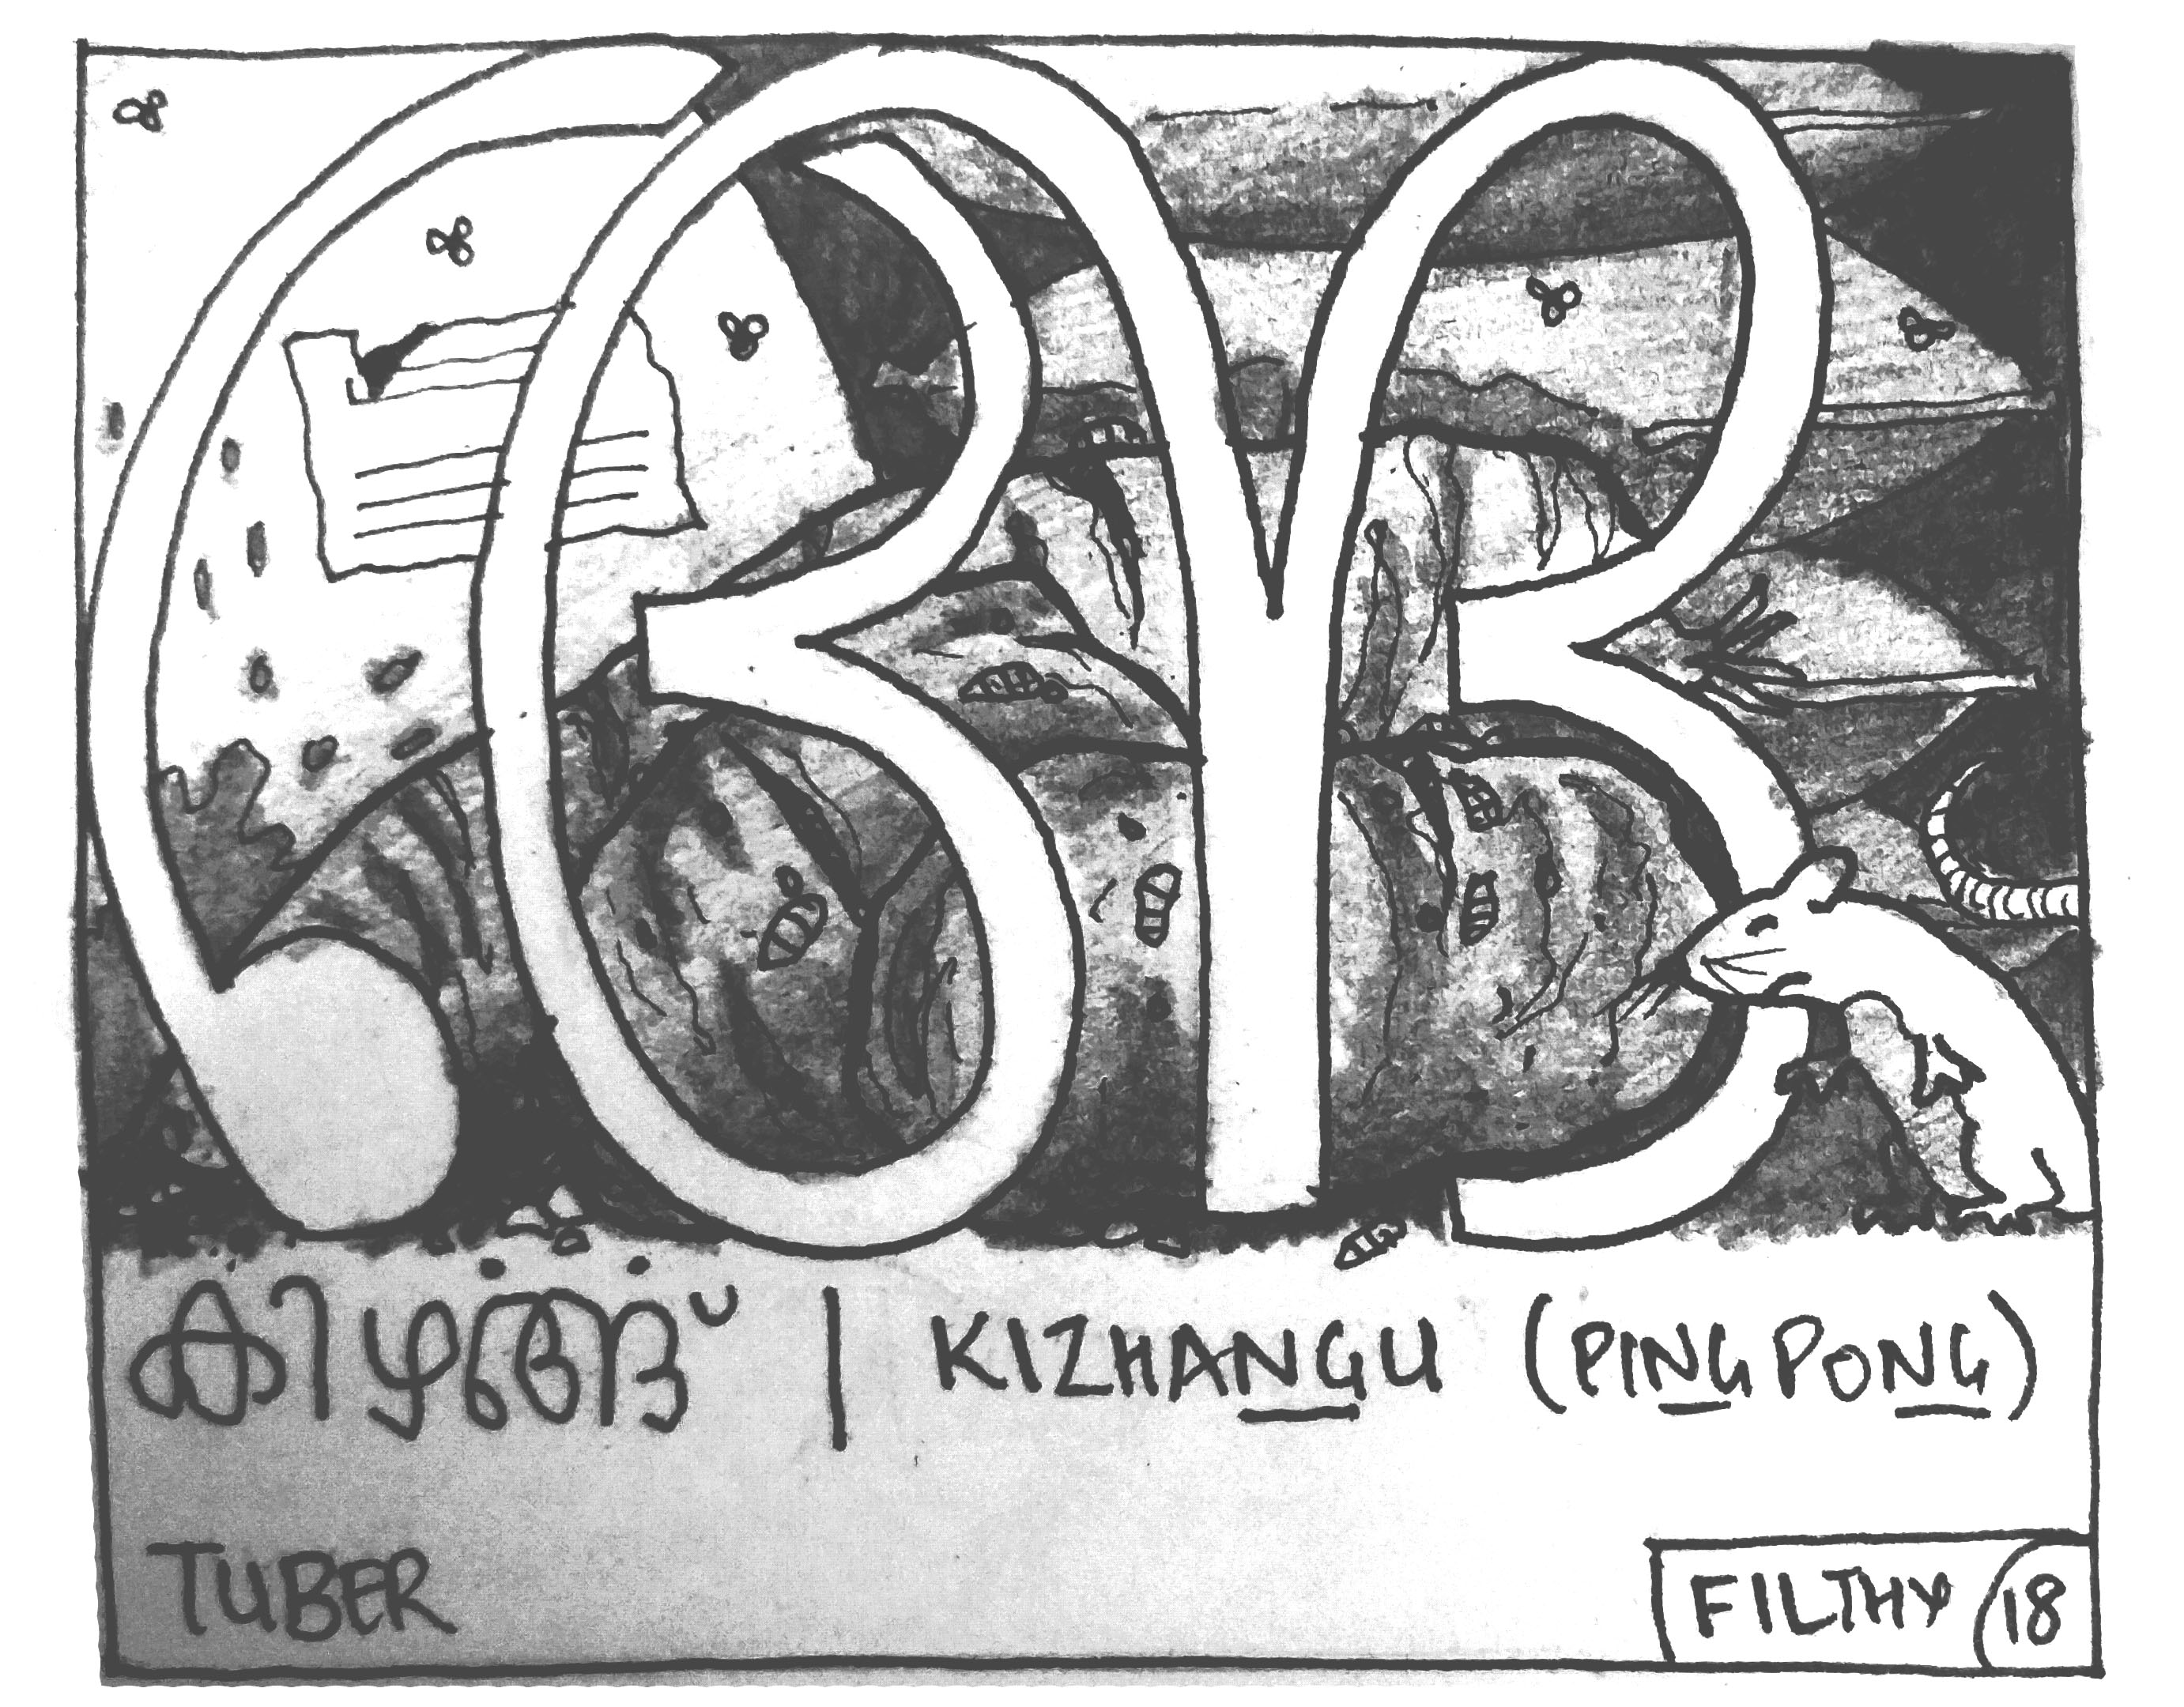 ങ്ങ
കിഴങ്ങ് | KIZHANGU (PING PONG)
TUBER
FILTHY 18